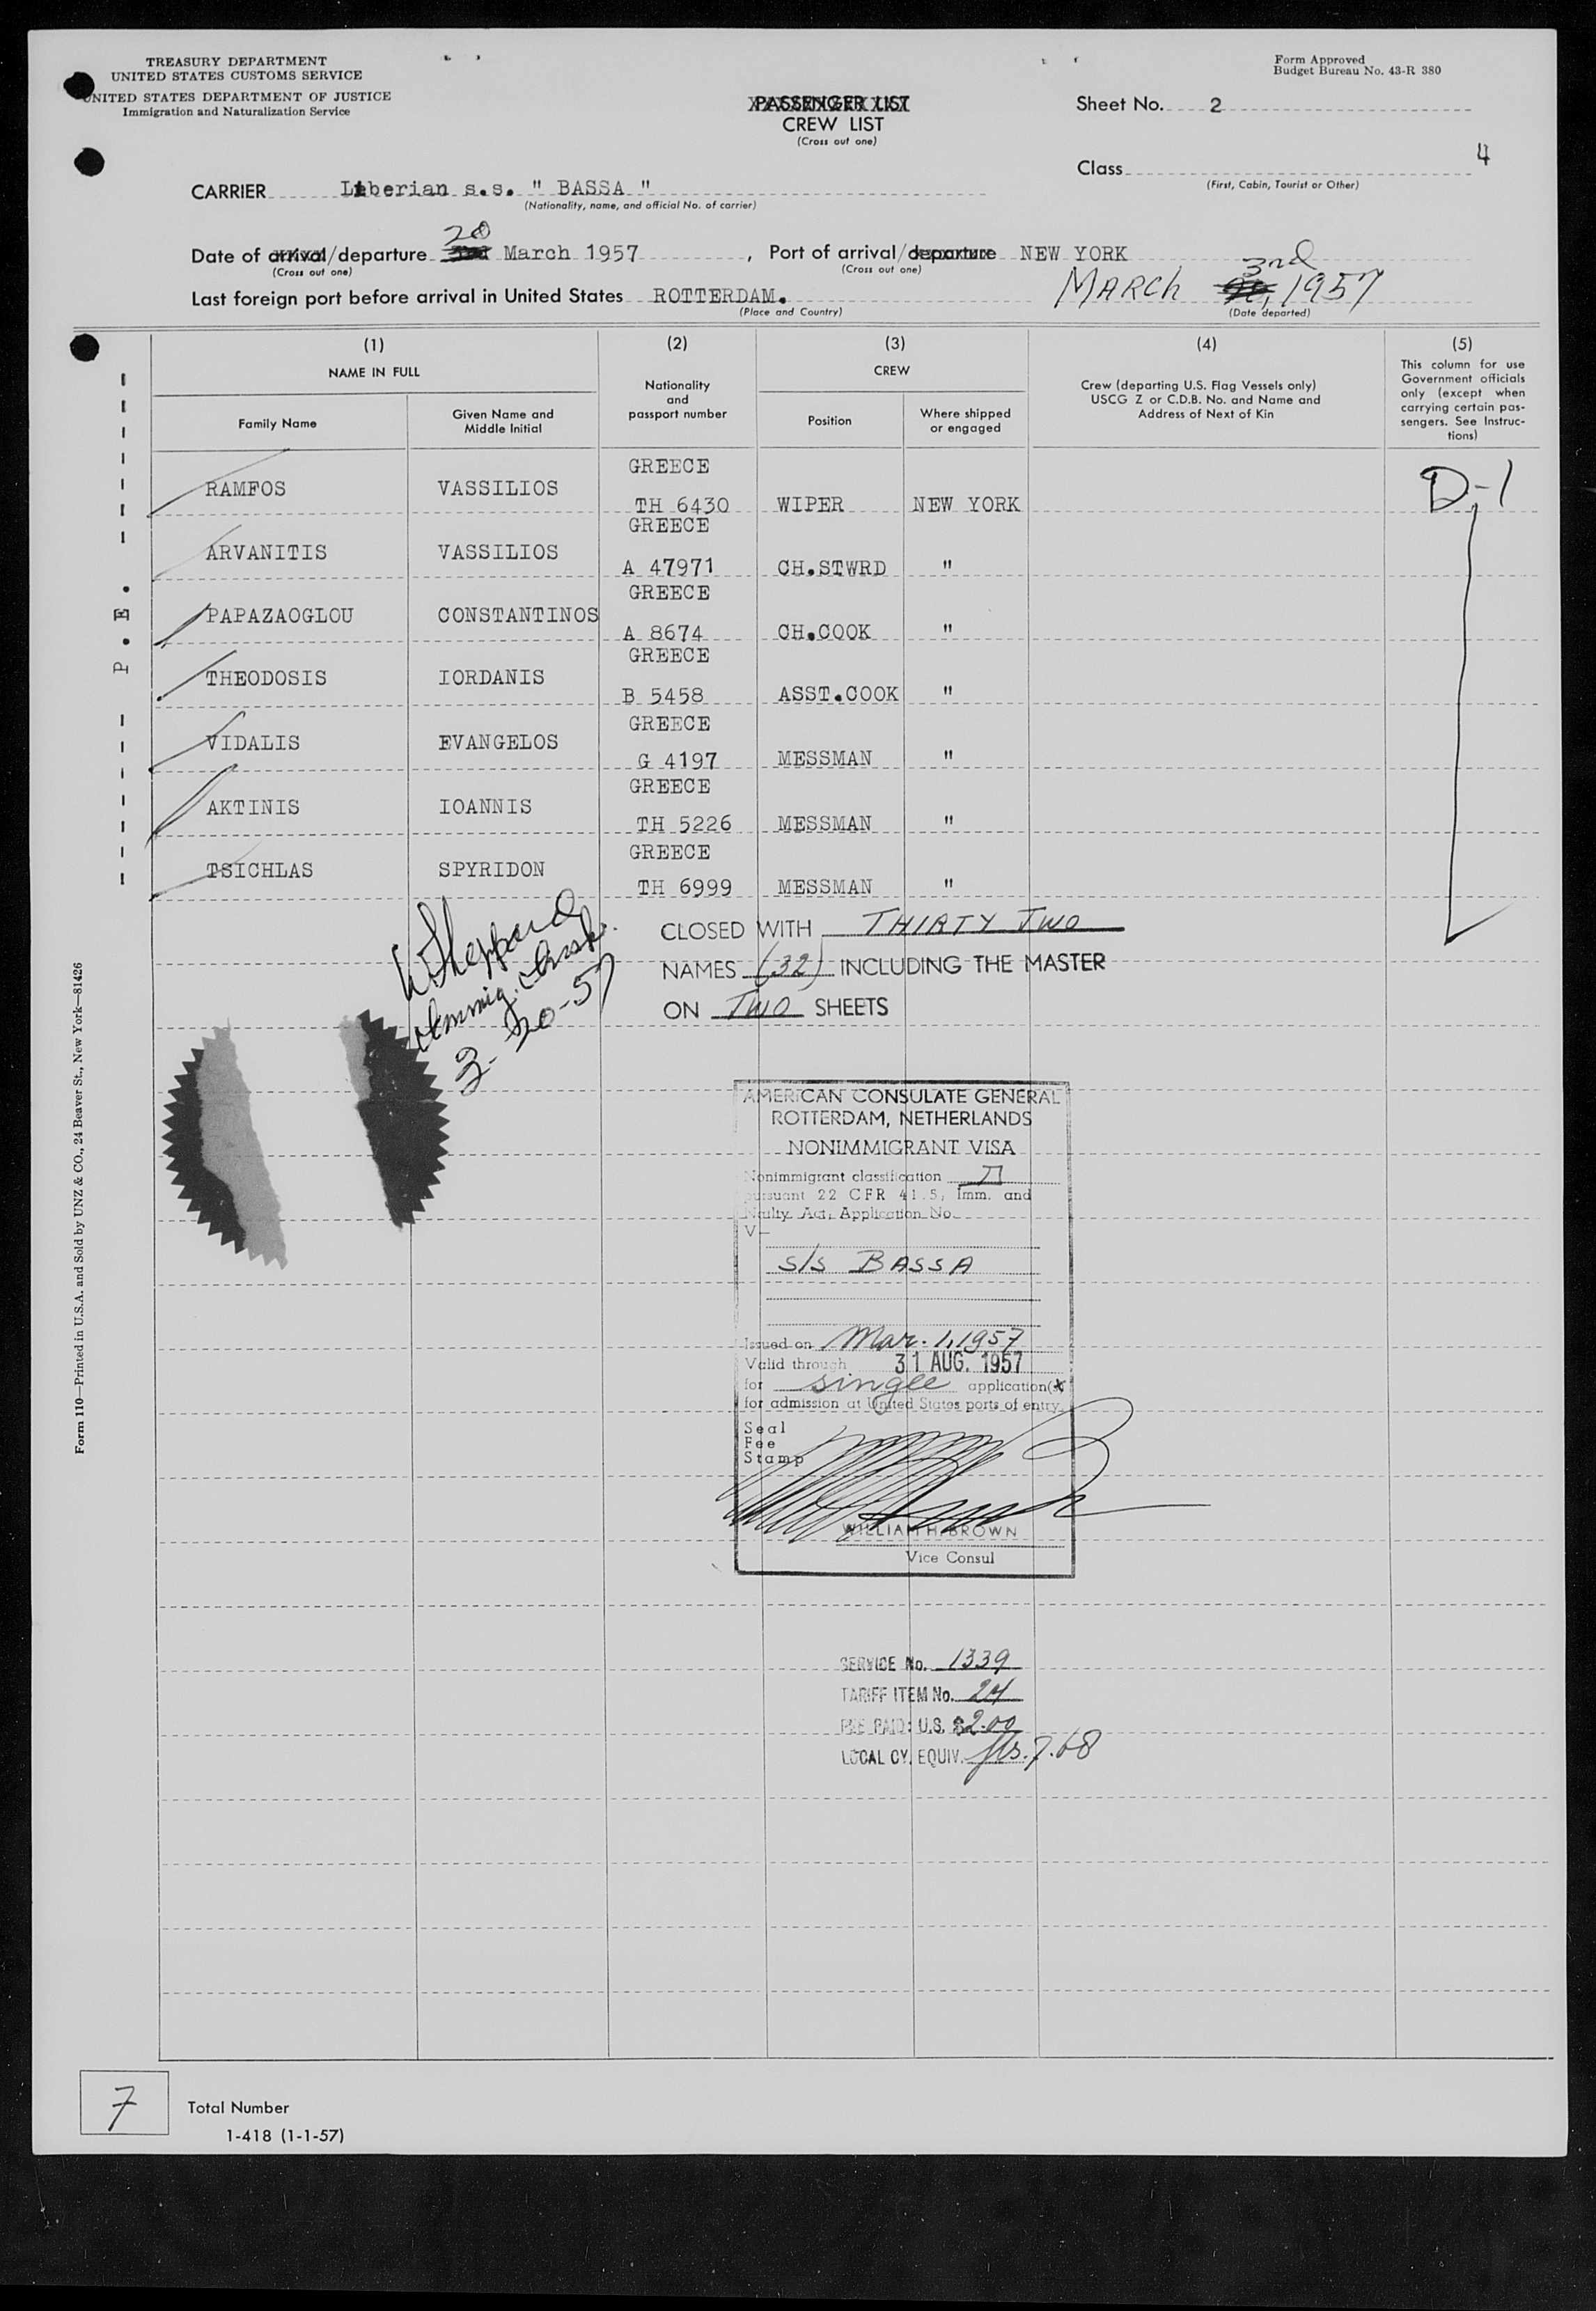 TREASURY DEPARTMENT
UNITED STATES CUSTOMS SERVICE
UNITED STATES DEPARTMENT OF JUSTICE
Immigration and Naturalization Service
Form Approved
Budget Bureau No. 43-R 380
PASSENGER LIST
CREW LIST
(Cross out one)
Sheet No. 2
4
Class
(First, Cabin, Tourist or Other)
CARRIER Liberian s.s. " BASSA "
(Nationality, name, and official No. of carrier)
20
Date of arrival/departure March 1957, Port of arrival/departure NEW YORK
(Cross out one) (Cross out one)
3rd
Last foreign port before arrival in United States ROTTERDAM. MARCH 1957
(Place and Country) (Date departed)
(1) (2) (3) (4) (5)
NAME IN FULL
Family Name
Given Name and Middle Initial
Nationality and passport number
CREW
Position
Where shipped or engaged
Crew (departing U.S. Flag Vessels only)
USCG Z or C.D.B. No. and Name and
Address of Next of Kin
This column for use
Government officials
only (except when
carrying certain pas-
sengers. See Instruc-
tions)
GREECE
RAMFOS VASSILIOS TH 6430 WIPER NEW YORK D-1
GREECE
ARVANITIS VASSILIOS A 47971 CH.STWRD "
GREECE
PAPAZAOGLOU CONSTANTINOS A 8674 CH.COOK "
GREECE
THEODOSIS IORDANIS B 5458 ASST.COOK "
GREECE
VIDALIS EVANGELOS G 4197 MESSMAN "
GREECE
AKTINIS IOANNIS TH 5226 MESSMAN "
GREECE
TSICHLAS SPYRIDON TH 6999 MESSMAN "
P.E.
CLOSED WITH THIRTY TWO
NAMES (32) INCLUDING THE MASTER
ON TWO SHEETS
W Sheppard
Immig. Insp.
3-20-57
AMERICAN CONSULATE GENERAL
ROTTERDAM, NETHERLANDS
NONIMMIGRANT VISA
Nonimmigrant classification
pursuant 22 CFR 41.5, Imm. and
Natlty. Act, Application No.
V-
S/S BASSA
Issued on Mar. 1, 1957
Valid through 31 AUG. 1957
for single application(
for admission at United States ports of entry.
Seal
Fee
Stamp
WILLIAM H. BROWN
Vice Consul
SERVICE No. 1339
TARIFF ITEM No. 24
FEE PAID: U.S. $2.00
LOCAL CY. EQUIV. fls. 7.68
Form 110—Printed in U.S.A. and Sold by UNZ & CO., 24 Beaver St., New York—81426
7
Total Number
1-418 (1-1-57)